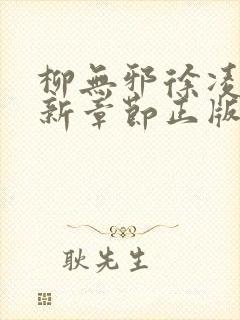 柳無邪徐凌
新章節正版
耿先生